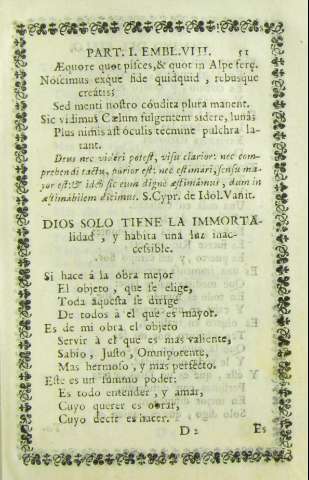 PART. I. EMBL. VIII. 51
Æquore quot pisces, & quot in Alpe feræ.
Noscimus exque fide quidquid, rebusque
creatis:
Sed menti nostro cõudita plura manent.
Sic vidimus Cœlum fulgentem sidere, lunã;
Plus nimis ast oculis tecmine pulchra la-
tant.
Deus nec videri potest, visu clarior: nec com-
prehendi tactu, purior est: nec estimari, sensu ma-
yor est: & ideò sic eum dignè æstimamus, dum in
æstimabilem dicimus. S. Cypr. de Idol. Vanit.
DIOS SOLO TIENE LA IMMORTA-
lidad, y habita una luz inac-
cessible.
Si hace à la obra mejor
El objeto, que se elige,
Toda aquesta se dirige
De todos à el que es mayor.
Es de mi obra el objeto
Servir à el que es mas valiente,
Sabio, Justo, Omnipotente,
Mas hermoso, y mas perfecto.
Este es un summo poder:
Es todo entender, y amar,
Cuyo querer es obrar,
Cuyo decir es hacer.
D 2 Es